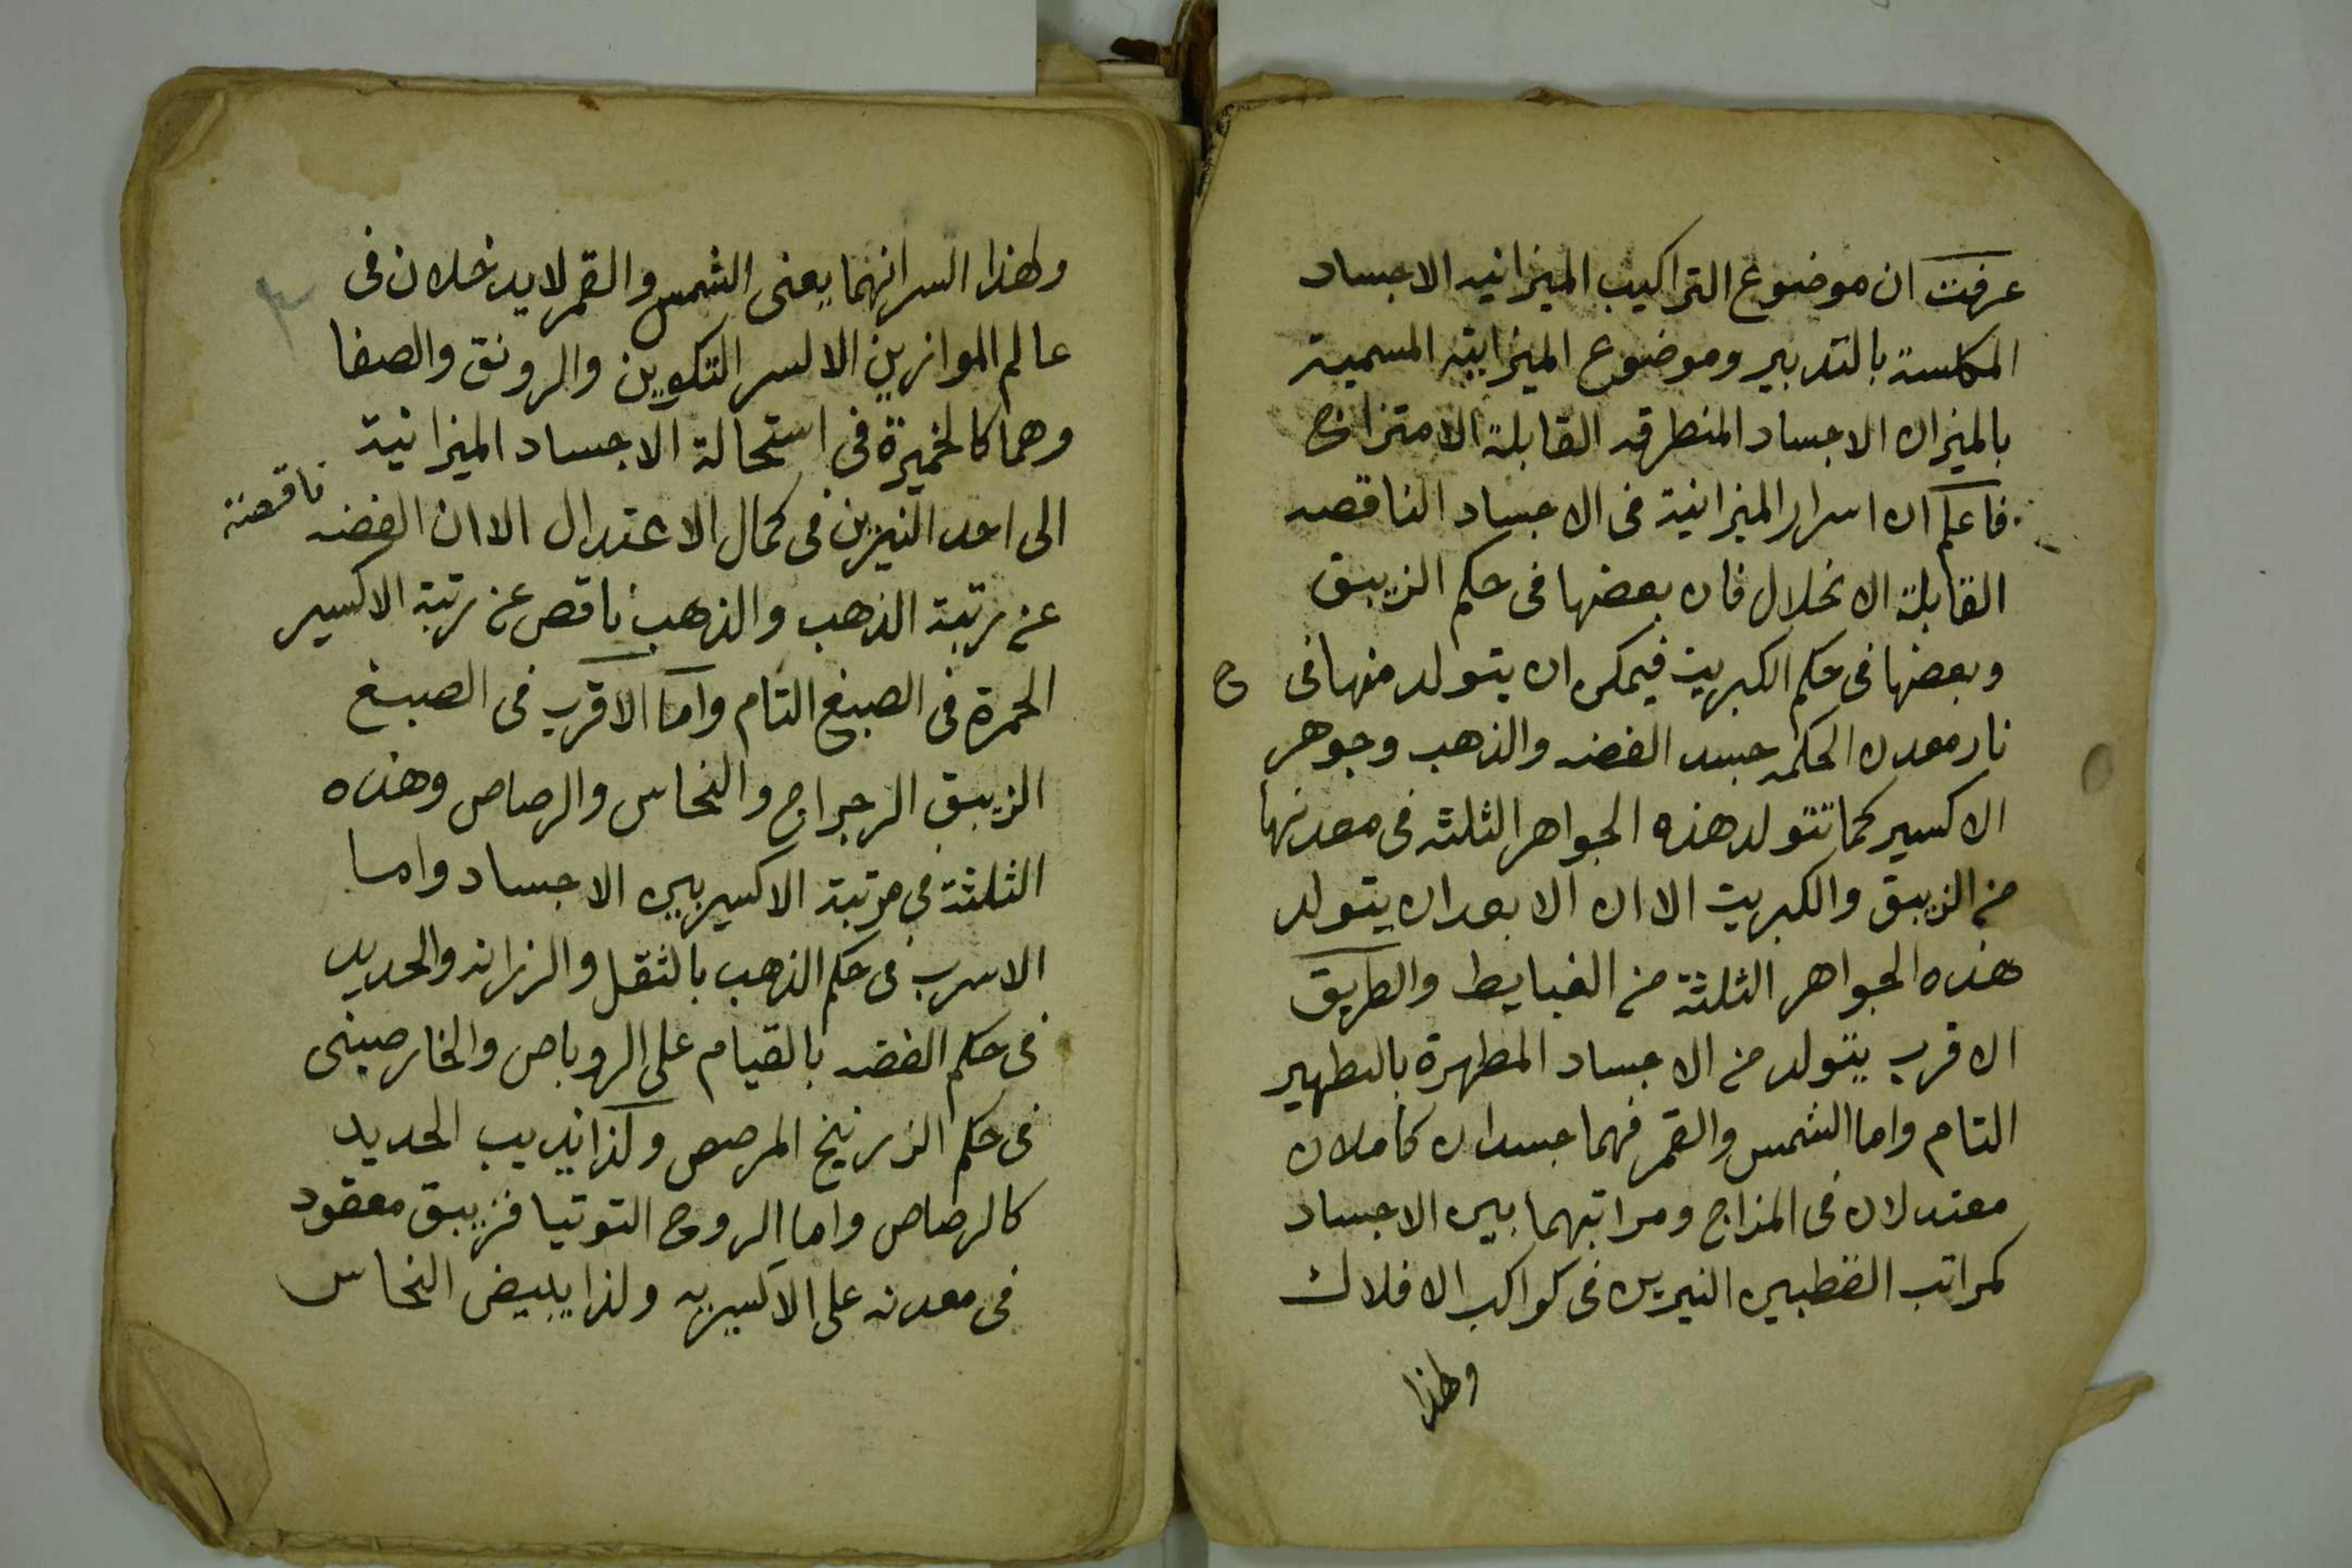 عرفت ان موضوع التراكيب الميزانيه الاجساد
المكلسة بالتدبير وموضوع الميزانية المسمية
بالميزان الاجساد المنطرقه القابلة الامتزاج
فاعلم ان اسرار الميزانية فى الاجساد الناقصه
القابلة الانحلال فان بعضها فى حكم الزيبق
وبعضها فى حكم الكبريت فيمكن ان يتولد منها فى
نار معدن الحكمه جسد الفضه والذهب وجوهر
الاكسير كما تتولد هذه الجواهر الثلثه فى معدنها
من الزيبق والكبريت الا ان الابعد ان يتولد
هذه الجواهر الثلثة من الغبايط والطريق
الاقرب يتولد من الاجساد المطهرة بالتطهير
التام واما الشمس والقمر فهما جسدان كاملان
معتدلان فى المزاج ومراتبهما بين الاجساد
كمراتب القطبين النيرين فى كواكب الافلاك
ولهذا
ولهذا السر انهما يعنى الشمس والقمر لا يدخلان فى
عالم الموازين الا لسر التكوين والرونق والصفا
وهما كالخميرة فى استحالة الاجساد الميزانية
الى احد النيرين فى كمال الاعتدال الا ان الفضه ناقصة
عن رتبة الذهب والذهب ناقص عن رتبة الاكسير
الحمرة فى الصبغ التام واما الاقرب فى الصبغ
الزيبق الرجراج والنحاس والرصاص وهذه
الثلثة فى مرتبة الاكسير بين الاجساد واما
الاسرب فى حكم الذهب بالثقل والرزانه والحديد
فى حكم الفضه بالقيام على الروباص والخارصينى
فى حكم الزرنيخ المرصص وكذا يذيب الحديد
كالرصاص واما الروح التوتيا فزيبق معقود
فى معدنه على الاكسيريه ولذا يبيض النحاس